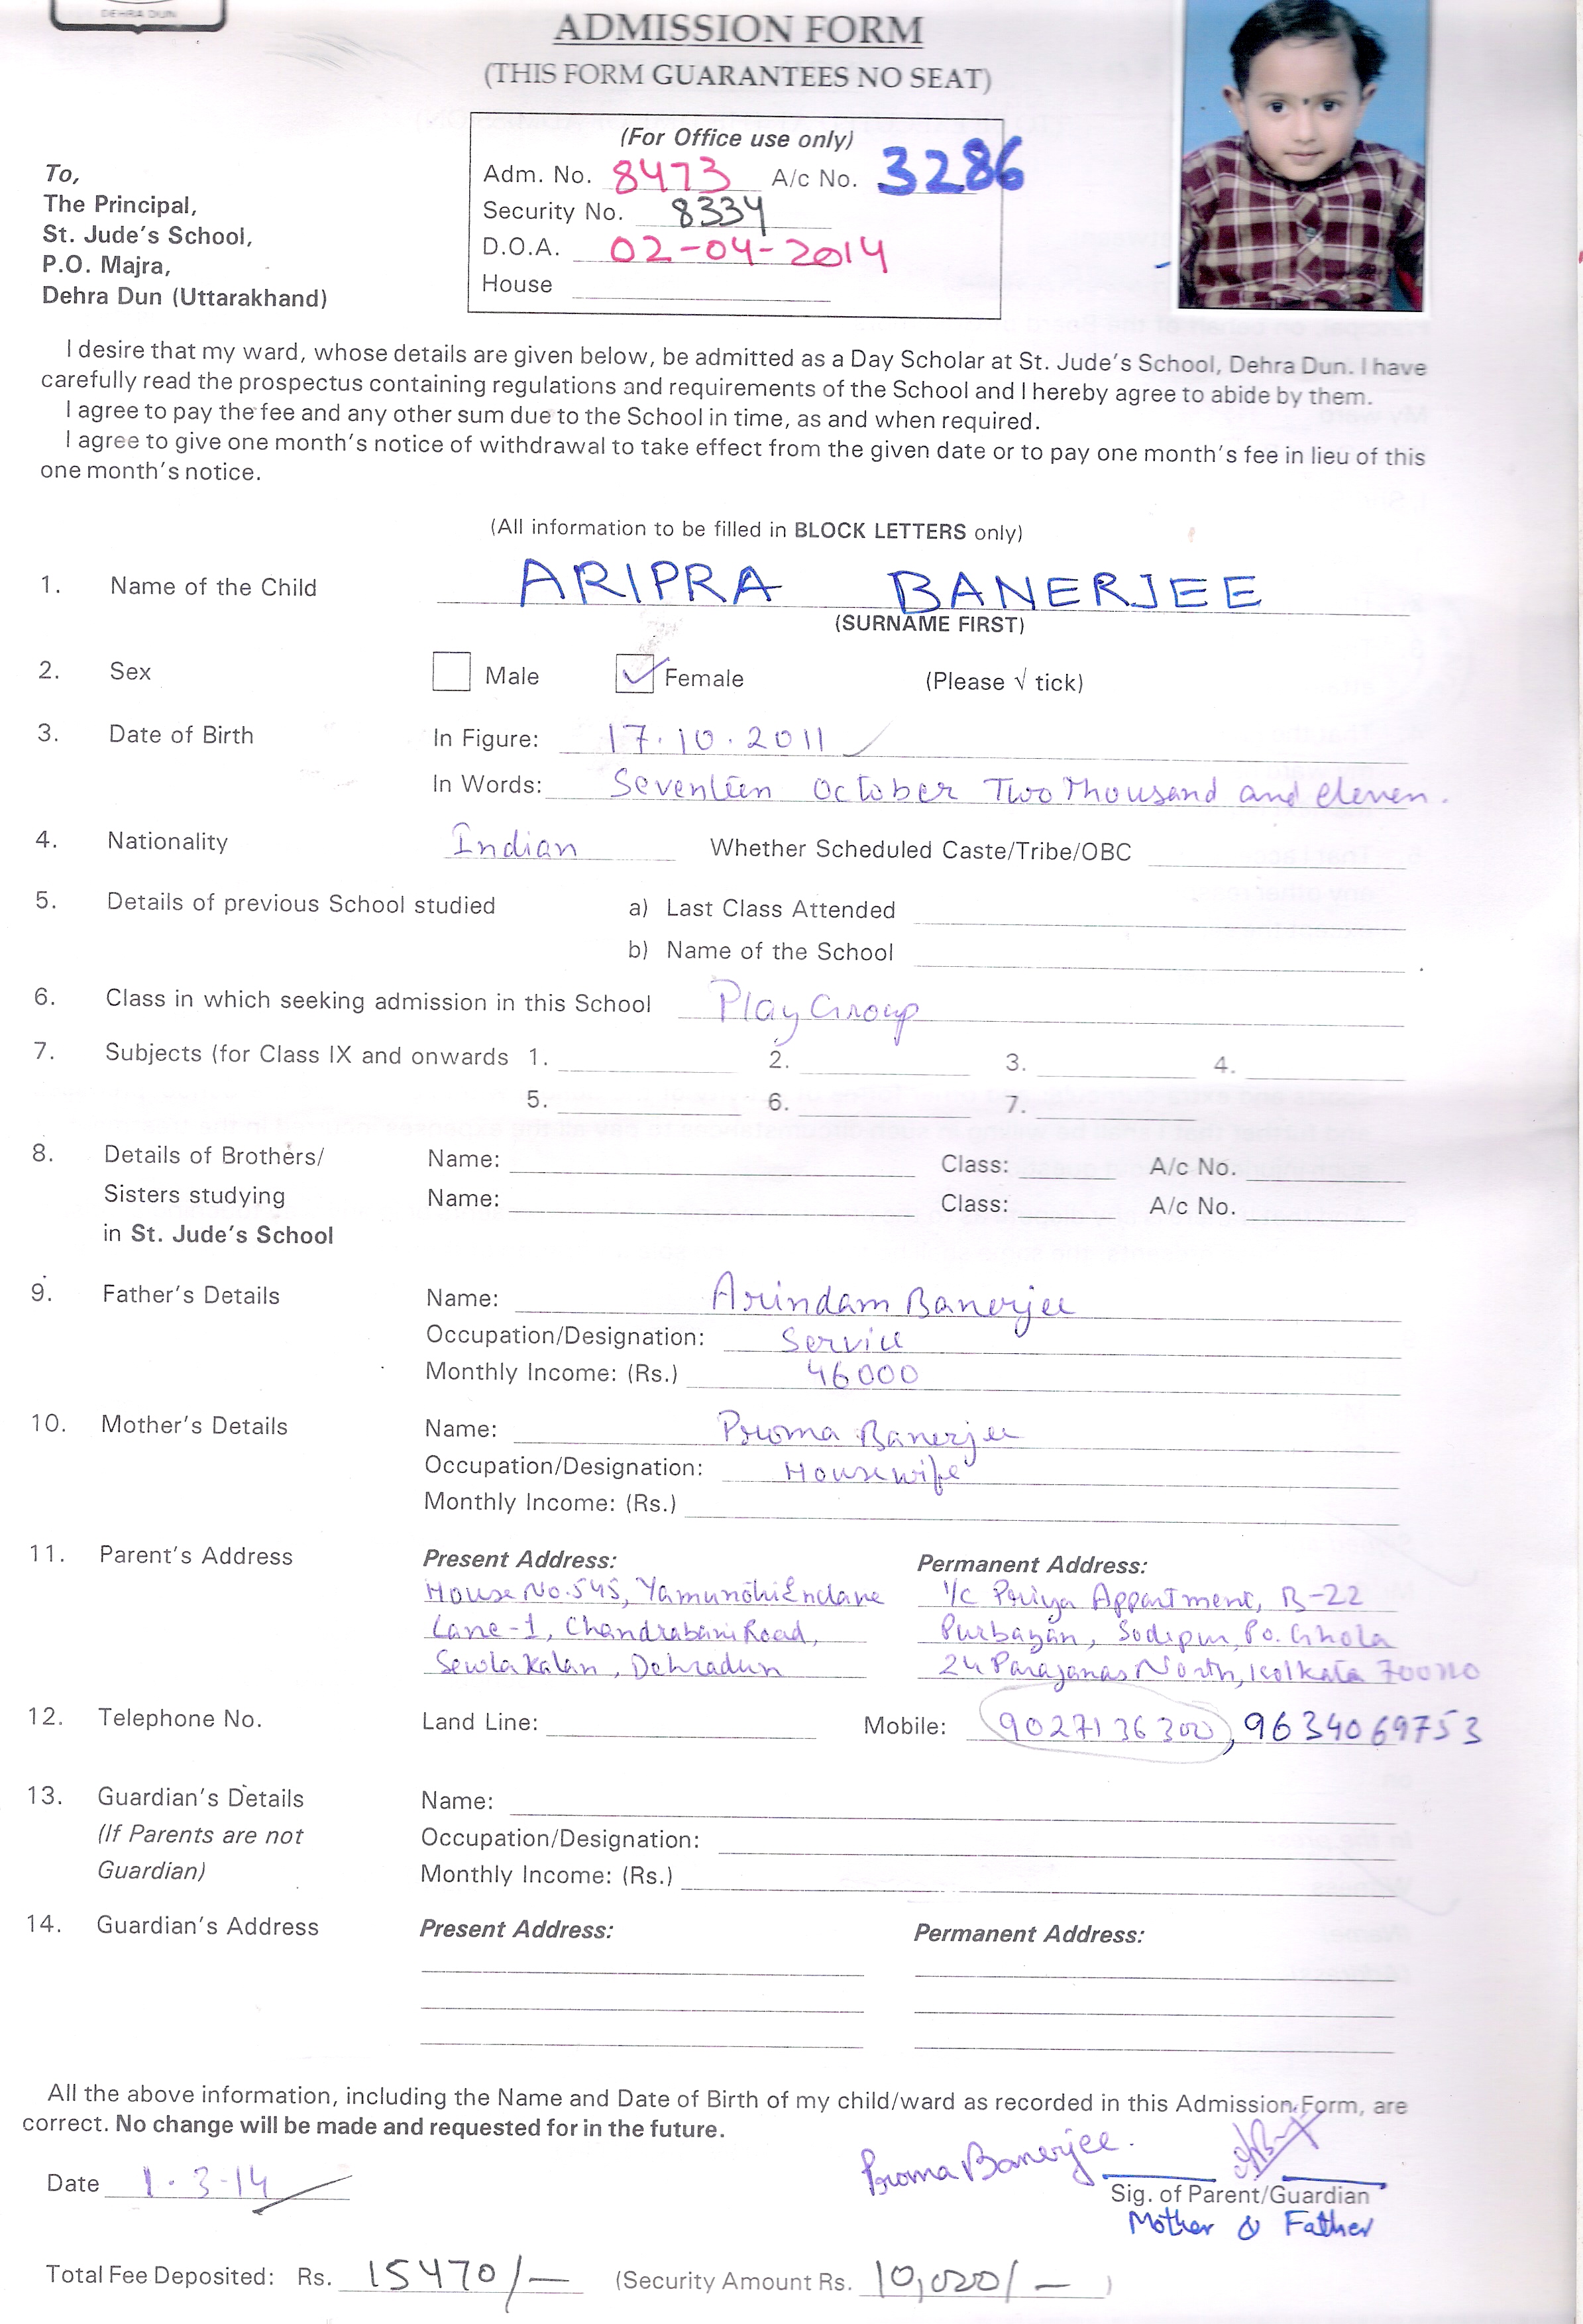 DEHRA DUN
ADMISSION FORM
(THIS FORM GUARANTEES NO SEAT)
(For Office use only)
Adm. No. 8473 A/c No. 3286
Security No. 8334
D.O.A. 02-04-2014
House
To,
The Principal,
St. Jude's School,
P.O. Majra,
Dehra Dun (Uttarakhand)
I desire that my ward, whose details are given below, be admitted as a Day Scholar at St. Jude's School, Dehra Dun. I have
carefully read the prospectus containing regulations and requirements of the School and I hereby agree to abide by them.
I agree to pay the fee and any other sum due to the School in time, as and when required.
I agree to give one month's notice of withdrawal to take effect from the given date or to pay one month's fee in lieu of this
one month's notice.
(All information to be filled in BLOCK LETTERS only)
1. Name of the Child ARIPRA BANERJEE
(SURNAME FIRST)
2. Sex Male ✓ Female (Please √ tick)
3. Date of Birth In Figure: 17.10.2011
In Words: Seventeen October Two Thousand and eleven.
4. Nationality Indian Whether Scheduled Caste/Tribe/OBC
5. Details of previous School studied a) Last Class Attended
b) Name of the School
6. Class in which seeking admission in this School Play Group
7. Subjects (for Class IX and onwards 1. 2. 3. 4.
5. 6. 7.
8. Details of Brothers/ Name: Class: A/c No.
Sisters studying Name: Class: A/c No.
in St. Jude's School
9. Father's Details Name: Arindam Banerjee
Occupation/Designation: Service
Monthly Income: (Rs.) 46000
10. Mother's Details Name: Proma Banerjee
Occupation/Designation: Housewife
Monthly Income: (Rs.)
11. Parent's Address Present Address: Permanent Address:
House No.545, Enclave 1/C Priya Appartment, B-22
Lane-1, Chandrabani Road, Purbayan, Sodepur, Po. Ghola
Sewla Kalan, Dehradun 24 Parajanas North, Kolkata
12. Telephone No. Land Line: Mobile: 9027136300, 9634069753
13. Guardian's Details Name:
(If Parents are not Occupation/Designation:
Guardian) Monthly Income: (Rs.)
14. Guardian's Address Present Address: Permanent Address:
All the above information, including the Name and Date of Birth of my child/ward as recorded in this Admission Form, are
correct. No change will be made and requested for in the future.
Proma Banerjee.
Date 1.3.14
Sig. of Parent/Guardian
Mother & Father
Total Fee Deposited: Rs. 15470/- (Security Amount Rs. 10,020/- )